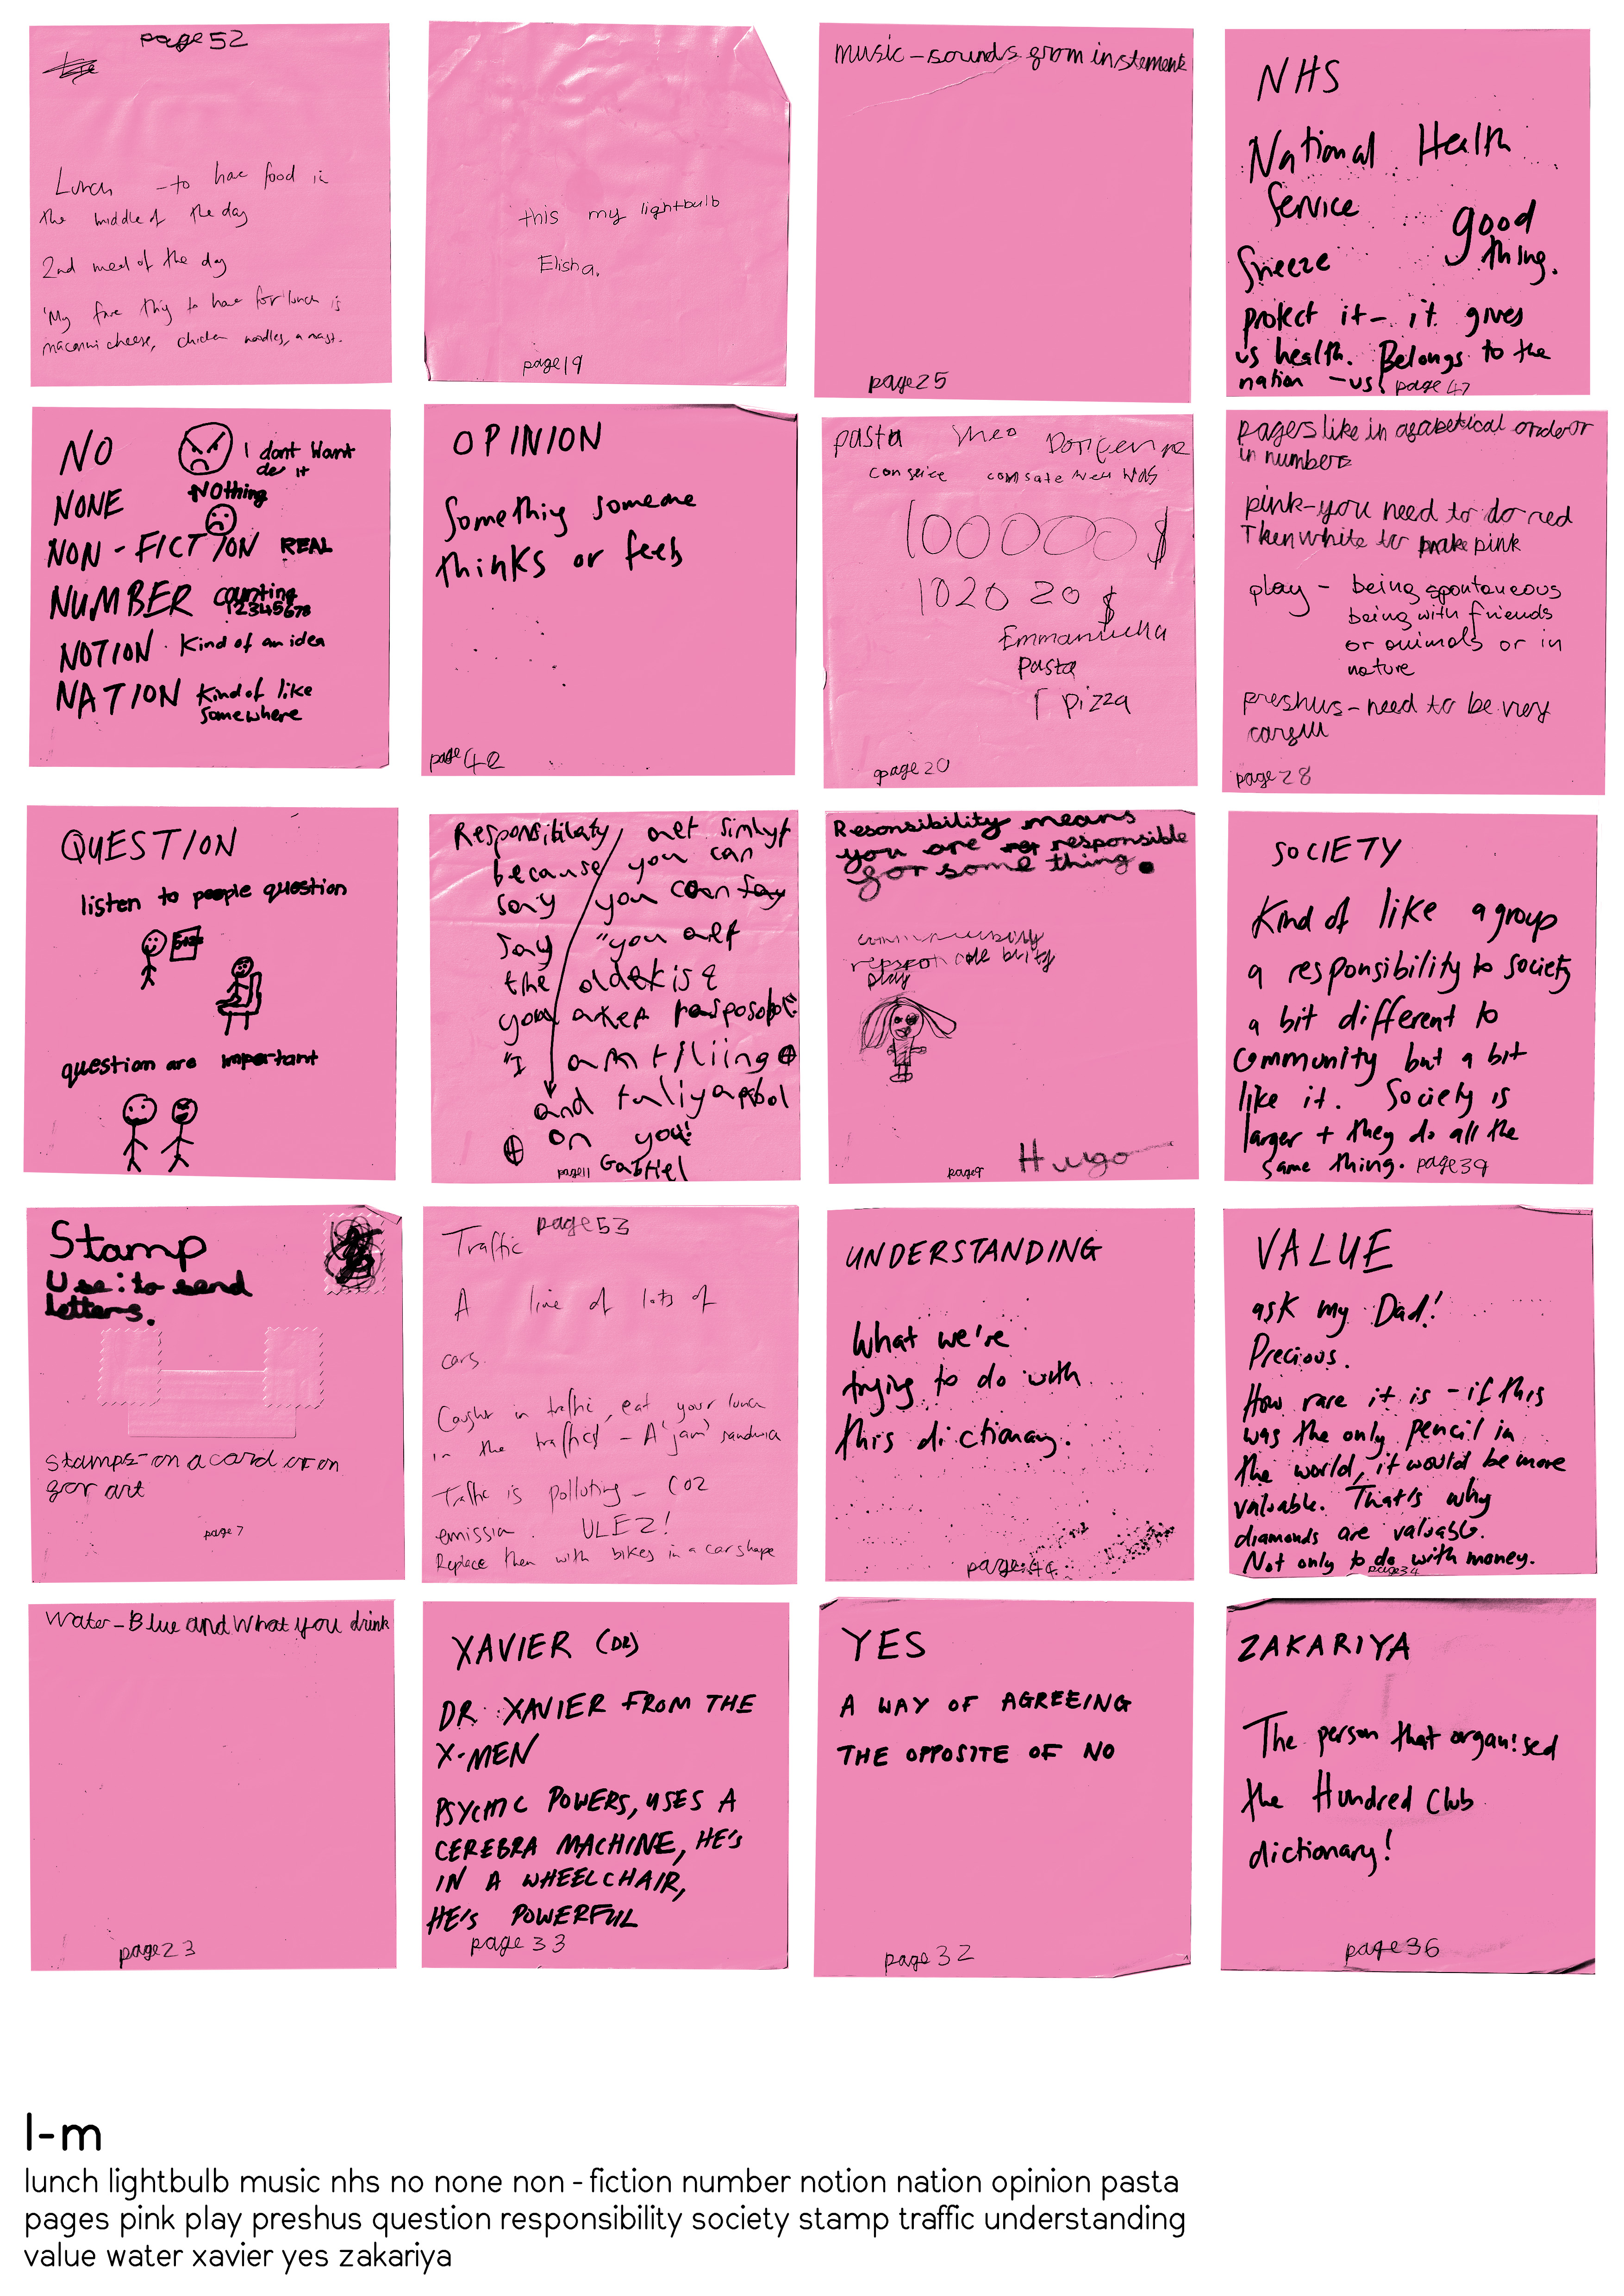 page 52
Lunch - to have food in
the middle of the day
2nd meal of the day
'My fave thing to have for lunch is
macaroni cheese, chicken noodles, a roast.
this my lightbulb
Elisha.
page 19
music - sounds from instements
page 25
NHS
National Health
Service
good
thing.
Sneeze
protect it - it gives
us health. Belongs to the
nation - us!
page 47
NO
I dont Want
do it
NONE
NOthing
NON - FICTION REAL
NUMBER counting
12345678
NOTION · Kind of an idea
NATION Kind of like
Somewhere
OPINION
Something someone
thinks or feels
page 42
pasta Theo
100000 $
1020 20 $
Emmanuella
pasta
pizza
page 20
pages like in afabetical order or
in numbers
pink - you need to do red
Then white to make pink
play - being spontaneous
being with friends
or animals or in
nature
preshus - need to be very
page 28
QUESTION
listen to people question
question are important
because you can
say you can say
say "you
the
"I am
and
on you!
page 11
Gabriel
Resonsibility means
you are responsible
for some thing.
play
page 9
Hugo
SOCIETY
Kind of like a group
a responsibility to society
a bit different to
Community but a bit
like it. Society is
larger + they do all the
same thing. page 39
Stamp
Use: to send
letters.
stamps - on a card or on
for art
page 7
page 53
Traffic
A line of lots of
cars.
Caught in traffic, eat your lunch
in the traffic! - A 'jam' sandwich
Traffic is polluting - CO2
emission. ULEZ!
Replace them with bikes in a car shape
UNDERSTANDING
What we're
trying to do with
this dictionary.
page 44
VALUE
ask my Dad!
Precious.
How rare it is - if this
was the only pencil in
the world, it would be more
valuable. That's why
diamonds are valuable.
Not only to do with money.
page 34
Water - Blue and What you drink
page 23
XAVIER (DR)
DR XAVIER FROM THE
X-MEN
PSYCHIC POWERS, USES A
CEREBRA MACHINE, HE'S
IN A WHEELCHAIR,
HE'S POWERFUL
page 33
YES
A WAY OF AGREEING
THE OPPOSITE OF NO
page 32
ZAKARIYA
The person that organised
the Hundred Club
dictionary!
page 36
l-m
lunch lightbulb music nhs no none non - fiction number notion nation opinion pasta
pages pink play preshus question responsibility society stamp traffic understanding
value water xavier yes zakariya